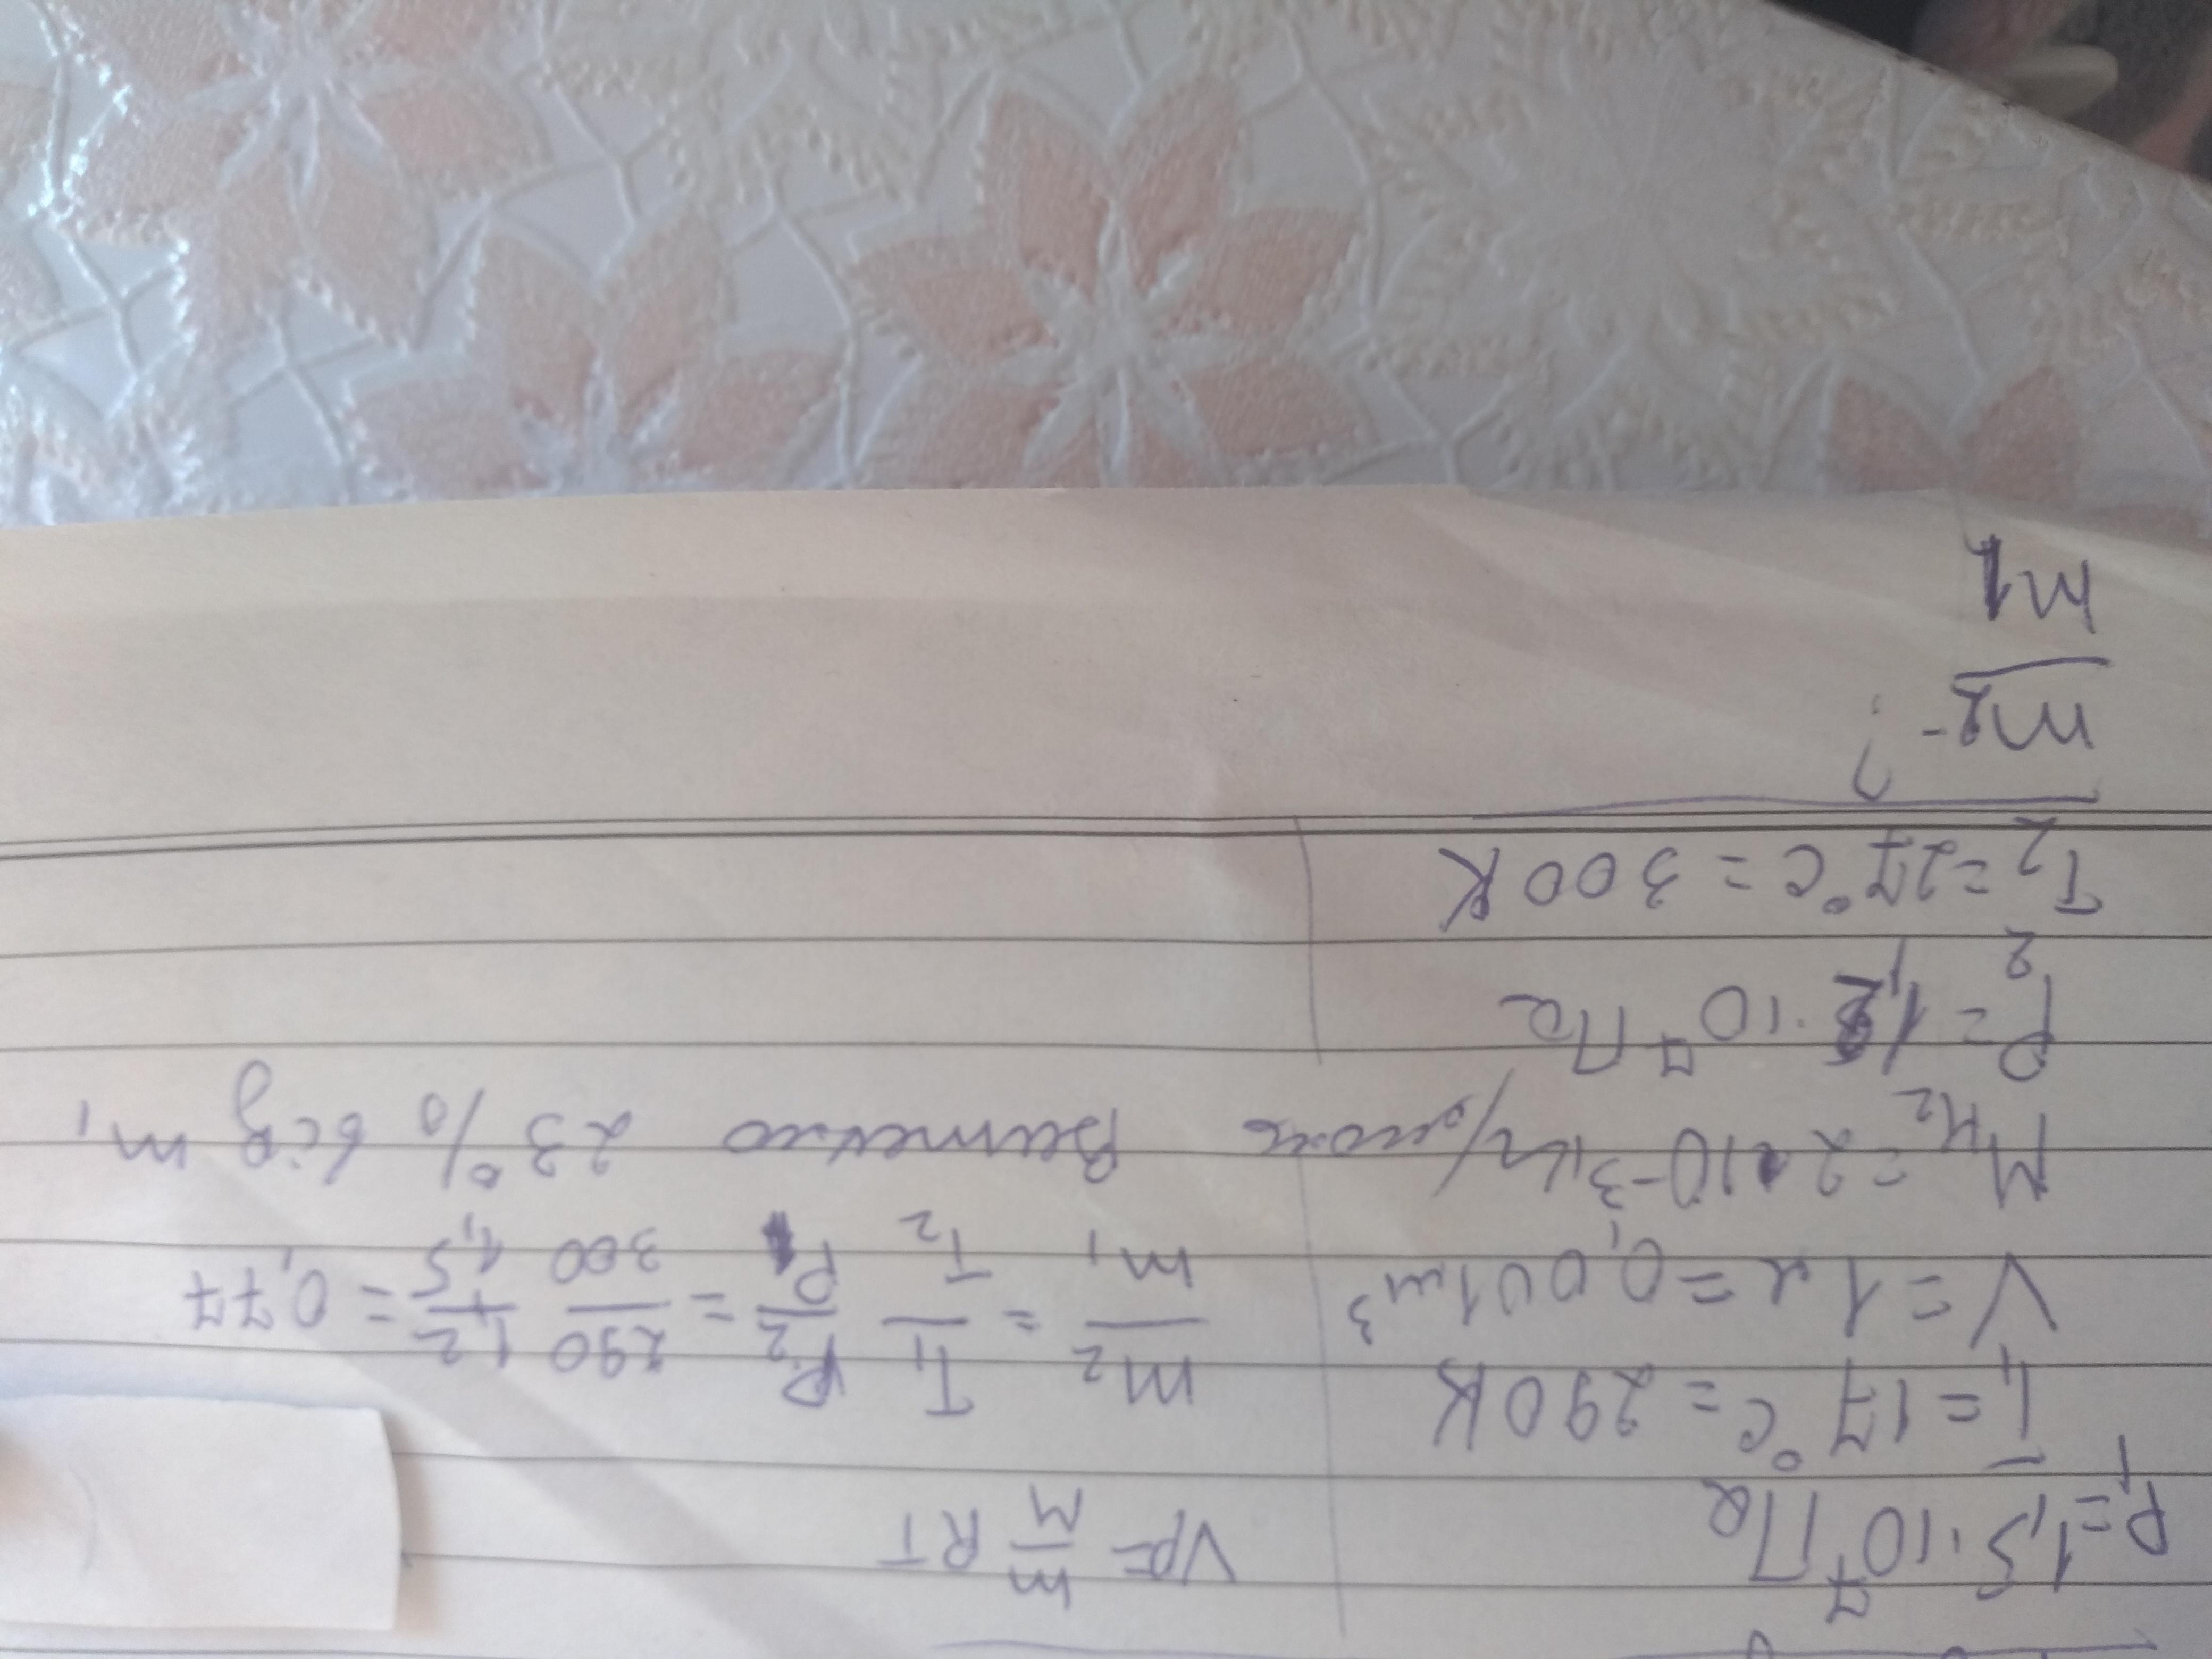 P₁=1,5·10⁷Па
T₁=17°C=290K
V=1л=0,001м³
M H₂=2·10⁻³кг/моль
P₂=1,2·10⁷Па
T₂=27°C=300K
m₂/m₁-?
Vp=m/M RT
m₂/m₁ = T₁/T₂ P₂/P₁ = 290/300 1,2/1,5 = 0,77
23% від m₁